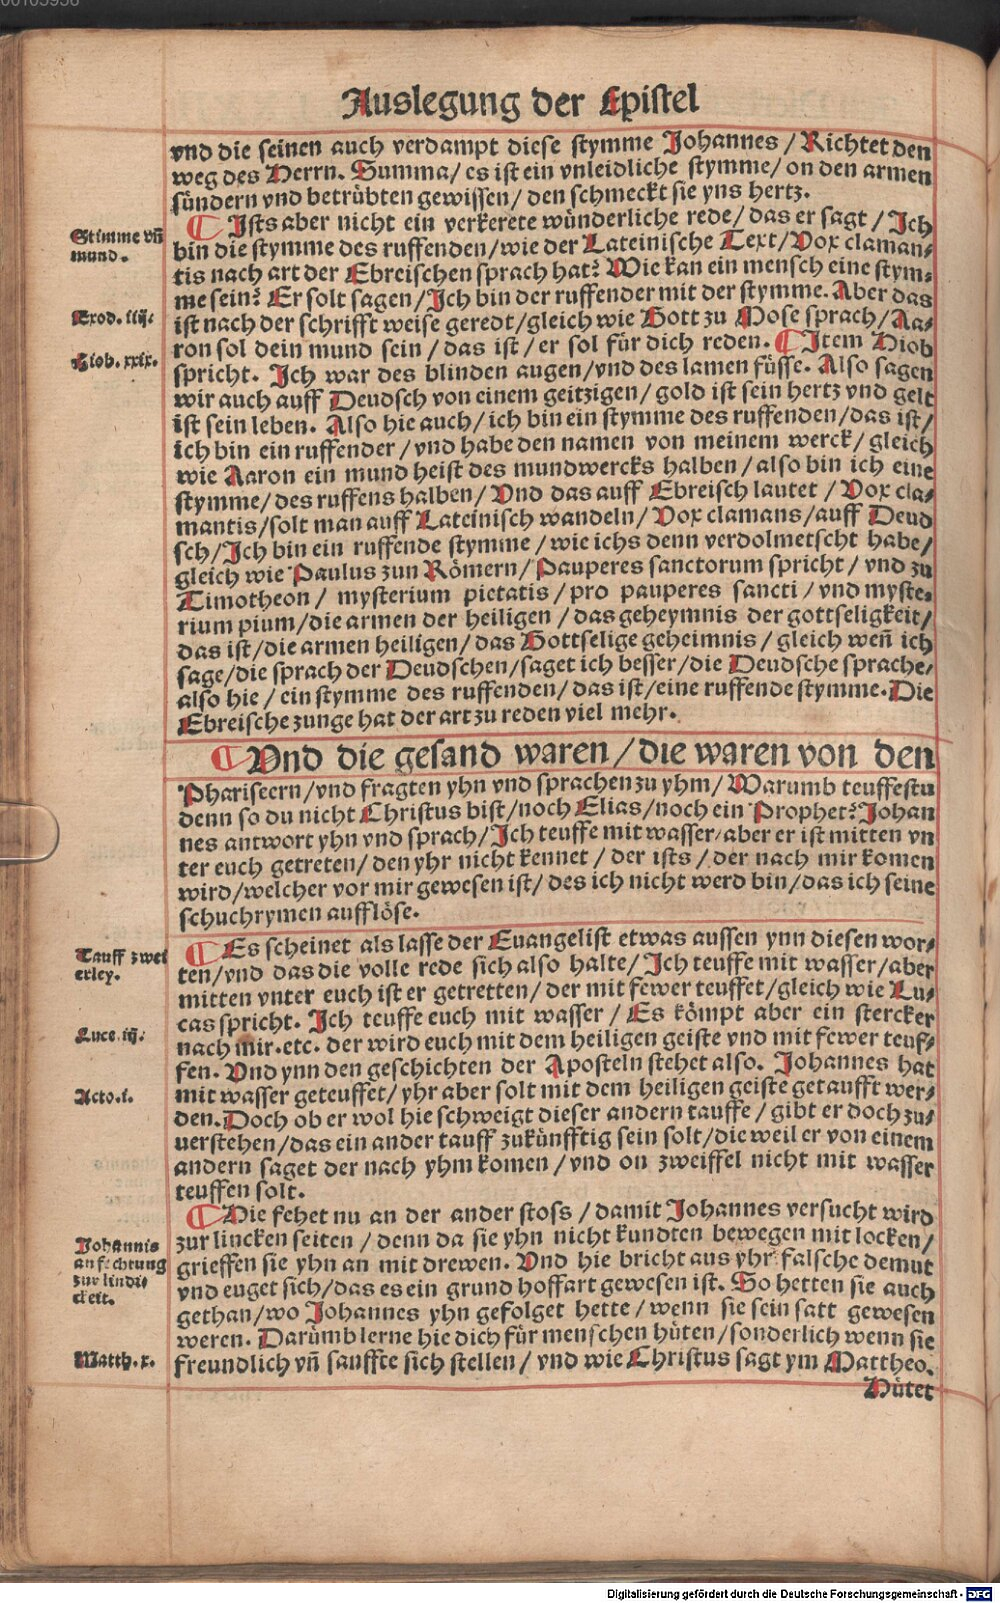 Auslegung der Epistel
vnd die seinen auch verdampt diese stymme Johannes / Richtet den
weg des Herrn. Summa / es ist ein vnleidliche stymme / on den armen
sündern vnd betrübten gewissen / den schmeckt sie yns hertz.
Stimme vñ
mund.
¶ Ists aber nicht ein verkerete wünderliche rede / das er sagt / Ich
bin die stymme des ruffenden / wie der Lateinische Text / Vox claman⸗
tis nach art der Ebreischen sprach hat? Wie kan ein mensch eine stym⸗
me sein? Er solt sagen / Ich bin der ruffender mit der stymme. Aber das
Exod. iiij.
ist nach der schrifft weise geredt / gleich wie Gott zu Mose sprach / Aa⸗
ron sol dein mund sein / das ist / er sol für dich reden. ¶ Item Hiob
Hiob. xxix.
spricht. Ich war des blinden augen / vnd des lamen füsse. Also sagen
wir auch auff Deudsch von einem geitzigen / gold ist sein hertz vnd gelt
ist sein leben. Also hie auch / ich bin ein stymme des ruffenden / das ist /
ich bin ein ruffender / vnd habe den namen von meinem werck / gleich
wie Aaron ein mund heist des mundwercks halben / also bin ich eine
stymme / des ruffens halben / Vnd das auff Ebreisch lautet / Vox cla⸗
mantis / solt man auff Lateinisch wandeln / Vox clamans / auff Deud
sch / Ich bin ein ruffende stymme / wie ichs denn verdolmetscht habe /
gleich wie Paulus zun Römern / Pauperes sanctorum spricht / vnd zu
Timotheon / mysterium pietatis / pro pauperes sancti / vnd myste⸗
rium pium / die armen der heiligen / das geheymnis der gottseligkeit /
das ist / die armen heiligen / das Gottselige geheimnis / gleich weñ ich
sage / die sprach der Deudschen / saget ich besser / die Deudsche sprache /
also hie / ein stymme des ruffenden / das ist / eine ruffende stymme. Die
Ebreische zunge hat der art zu reden viel mehr.
¶ Vnd die gesand waren / die waren von den
Phariseern / vnd fragten yhn vnd sprachen zu yhm / Warumb teuffestu
denn so du nicht Christus bist / noch Elias / noch ein Prophet? Johan
nes antwort yhn vnd sprach / Ich teuffe mit wasser / aber er ist mitten vn
ter euch getreten / den yhr nicht kennet / der ists / der nach mir komen
wird / welcher vor mir gewesen ist / des ich nicht werd bin / das ich seine
schuchrymen aufflöse.
Tauff zwei
erley.
¶ Es scheinet als lasse der Euangelist etwas aussen ynn diesen wor⸗
ten / vnd das die volle rede sich also halte / Ich teuffe mit wasser / aber
mitten vnter euch ist er getretten / der mit fewer teuffet / gleich wie Lu⸗
cas spricht. Ich teuffe euch mit wasser / Es kömpt aber ein stercker
Luce. iij.
nach mir. etc. der wird euch mit dem heiligen geiste vnd mit fewer teuf⸗
fen. Vnd ynn den geschichten der Aposteln stehet also. Johannes hat
Acto. i.
mit wasser geteuffet / yhr aber solt mit dem heiligen geiste getaufft wer⸗
den. Doch ob er wol hie schweigt dieser andern tauffe / gibt er doch zu⸗
uerstehen / das ein ander tauff zukünfftig sein solt / die weil er von einem
andern saget der nach yhm komen / vnd on zweiffel nicht mit wasser
teuffen solt.
¶ Hie fehet nu an der ander stoss / damit Johannes versucht wird
Johannis
anfechtung
zur lincke
seit.
zur lincken seiten / denn da sie yhn nicht kundten bewegen mit locken /
grieffen sie yhn an mit drewen. Vnd hie bricht aus yhr falsche demut
vnd euget sich / das es ein grund hoffart gewesen ist. So hetten sie auch
gethan / wo Johannes yhn gefolget hette / wenn sie sein satt gewesen
weren. Darümb lerne hie dich für menschen hüten / sonderlich wenn sie
Matth. x.
freundlich vñ sauffte sich stellen / vnd wie Christus sagt ym Mattheo.
Hütet
Digitalisierung gefördert durch die Deutsche Forschungsgemeinschaft - DFG